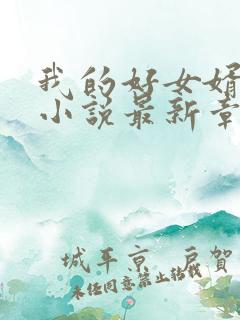 我的好女婿
小说最新章
城平京 戶賀
未任同意禁止转载